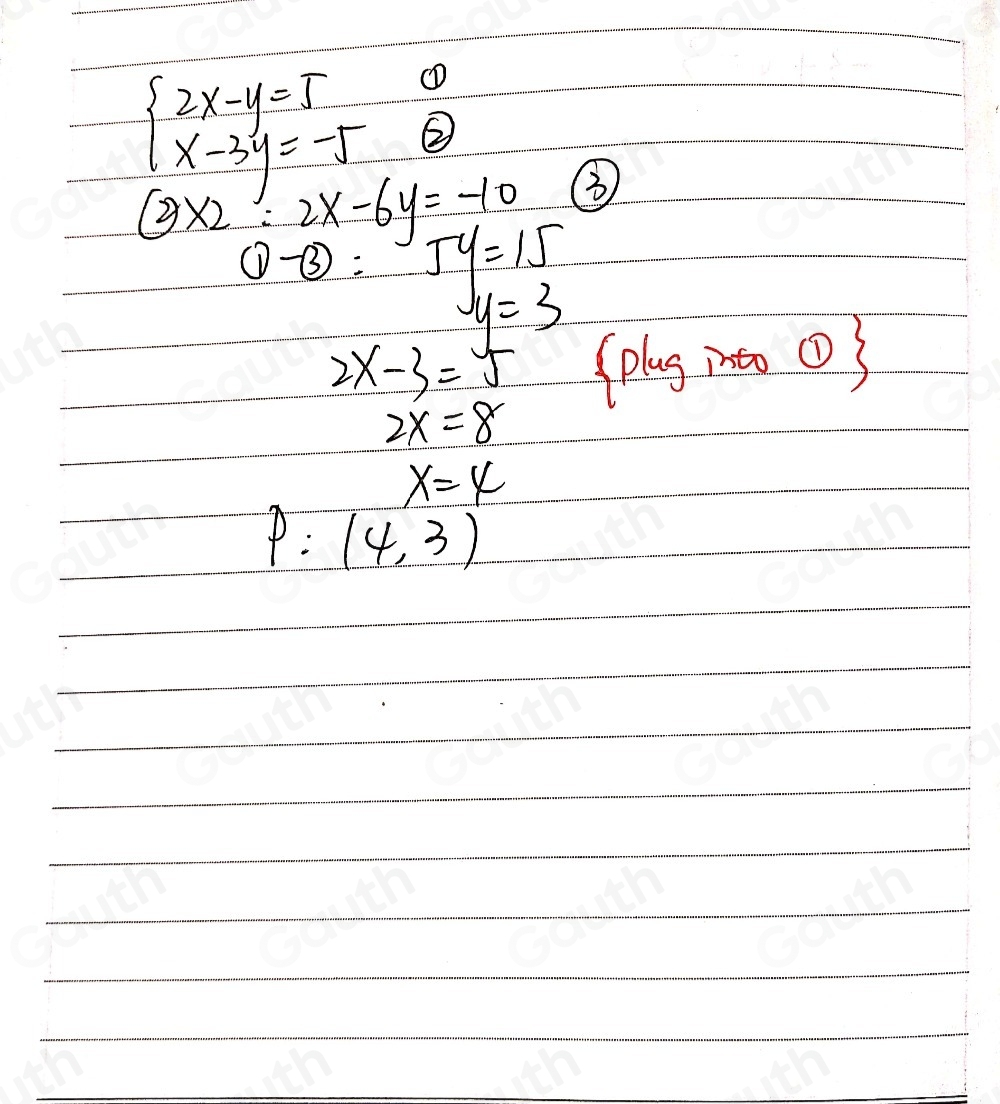 {2x-y=5 ①
x-3y=-5 ②
②×2: 2x-6y=-10 ③
①-③: 5y=15
y=3
2x-3=5 {plug into ①}
2x=8
x=4
P:(4,3)